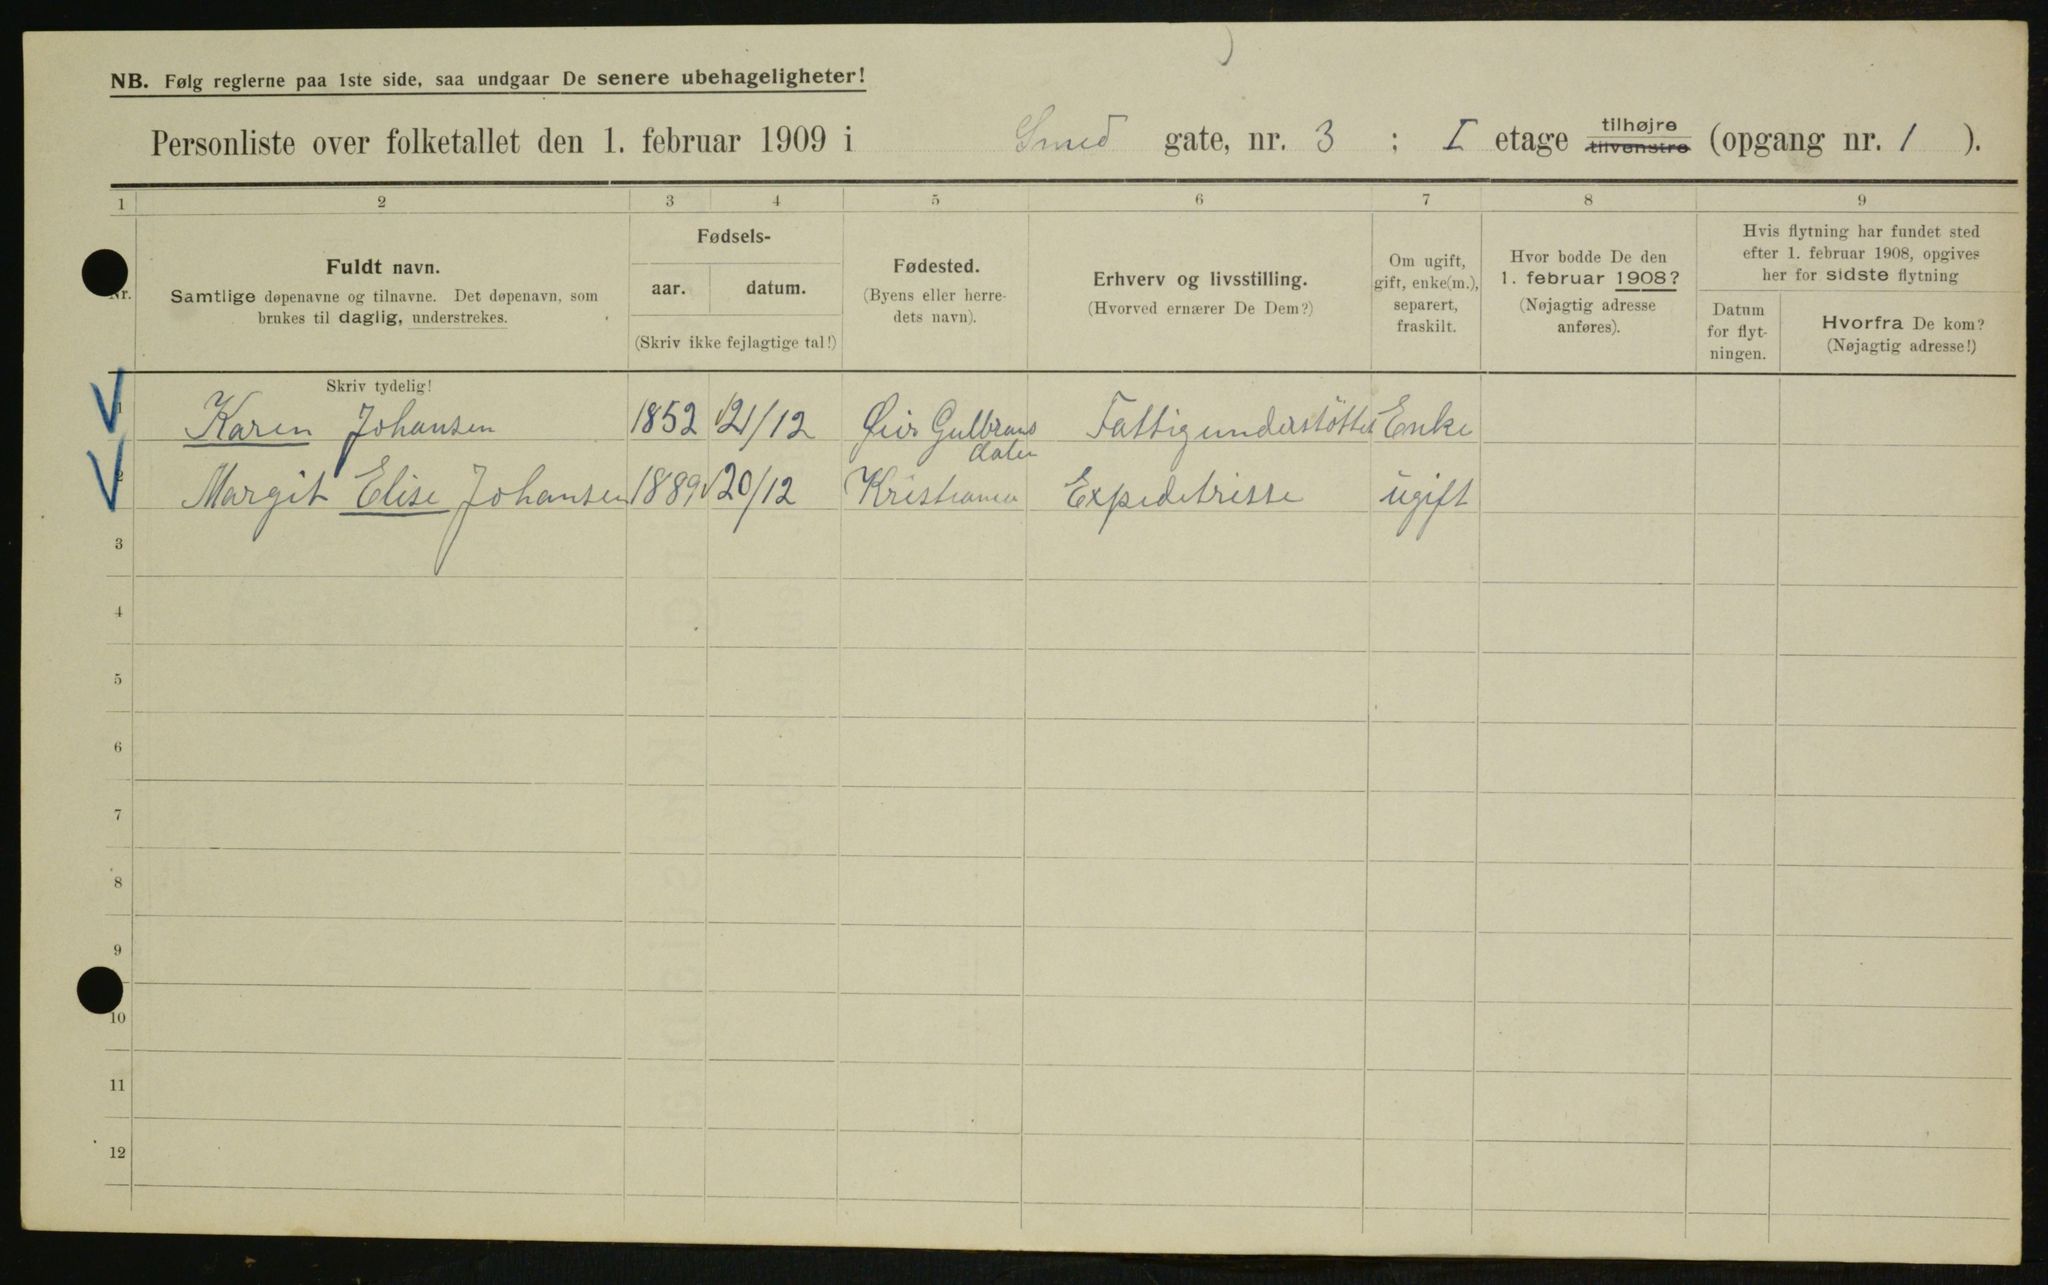 NB. Følg reglerne paa 1ste side, saa undgaar De senere ubehageligheter!
Personliste over folketallet den 1. februar 1909 i Smed gate, nr. 3 ; I etage tilhøjre tilvenstre (opgang nr. 1 ).
1 2 3 4 5 6 7 8 9
Nr.
Fuldt navn.
Samtlige døpenavne og tilnavne. Det døpenavn, som
brukes til daglig, understrekes.
Skriv tydelig!
Fødsels-
aar. datum.
(Skriv ikke fejlagtige tal!)
Fødested.
(Byens eller herre-
dets navn).
Erhverv og livsstilling.
(Hvorved ernærer De Dem?)
Om ugift,
gift, enke(m.),
separert,
fraskilt.
Hvor bodde De den
1. februar 1908?
(Nøjagtig adresse
anføres).
Hvis flytning har fundet sted
efter 1. februar 1908, opgives
her for sidste flytning
Datum
for flyt-
ningen.
Hvorfra De kom?
(Nøjagtig adresse!)
1 Karen Johansen 1852 21/12 Gulbrans Fattigunderstöttet Enke
dalen
2 Margit Elise Johansen 1889 20/12 Kristiania Expeditrisse ugift
3
4
5
6
7
8
9
10
11
12